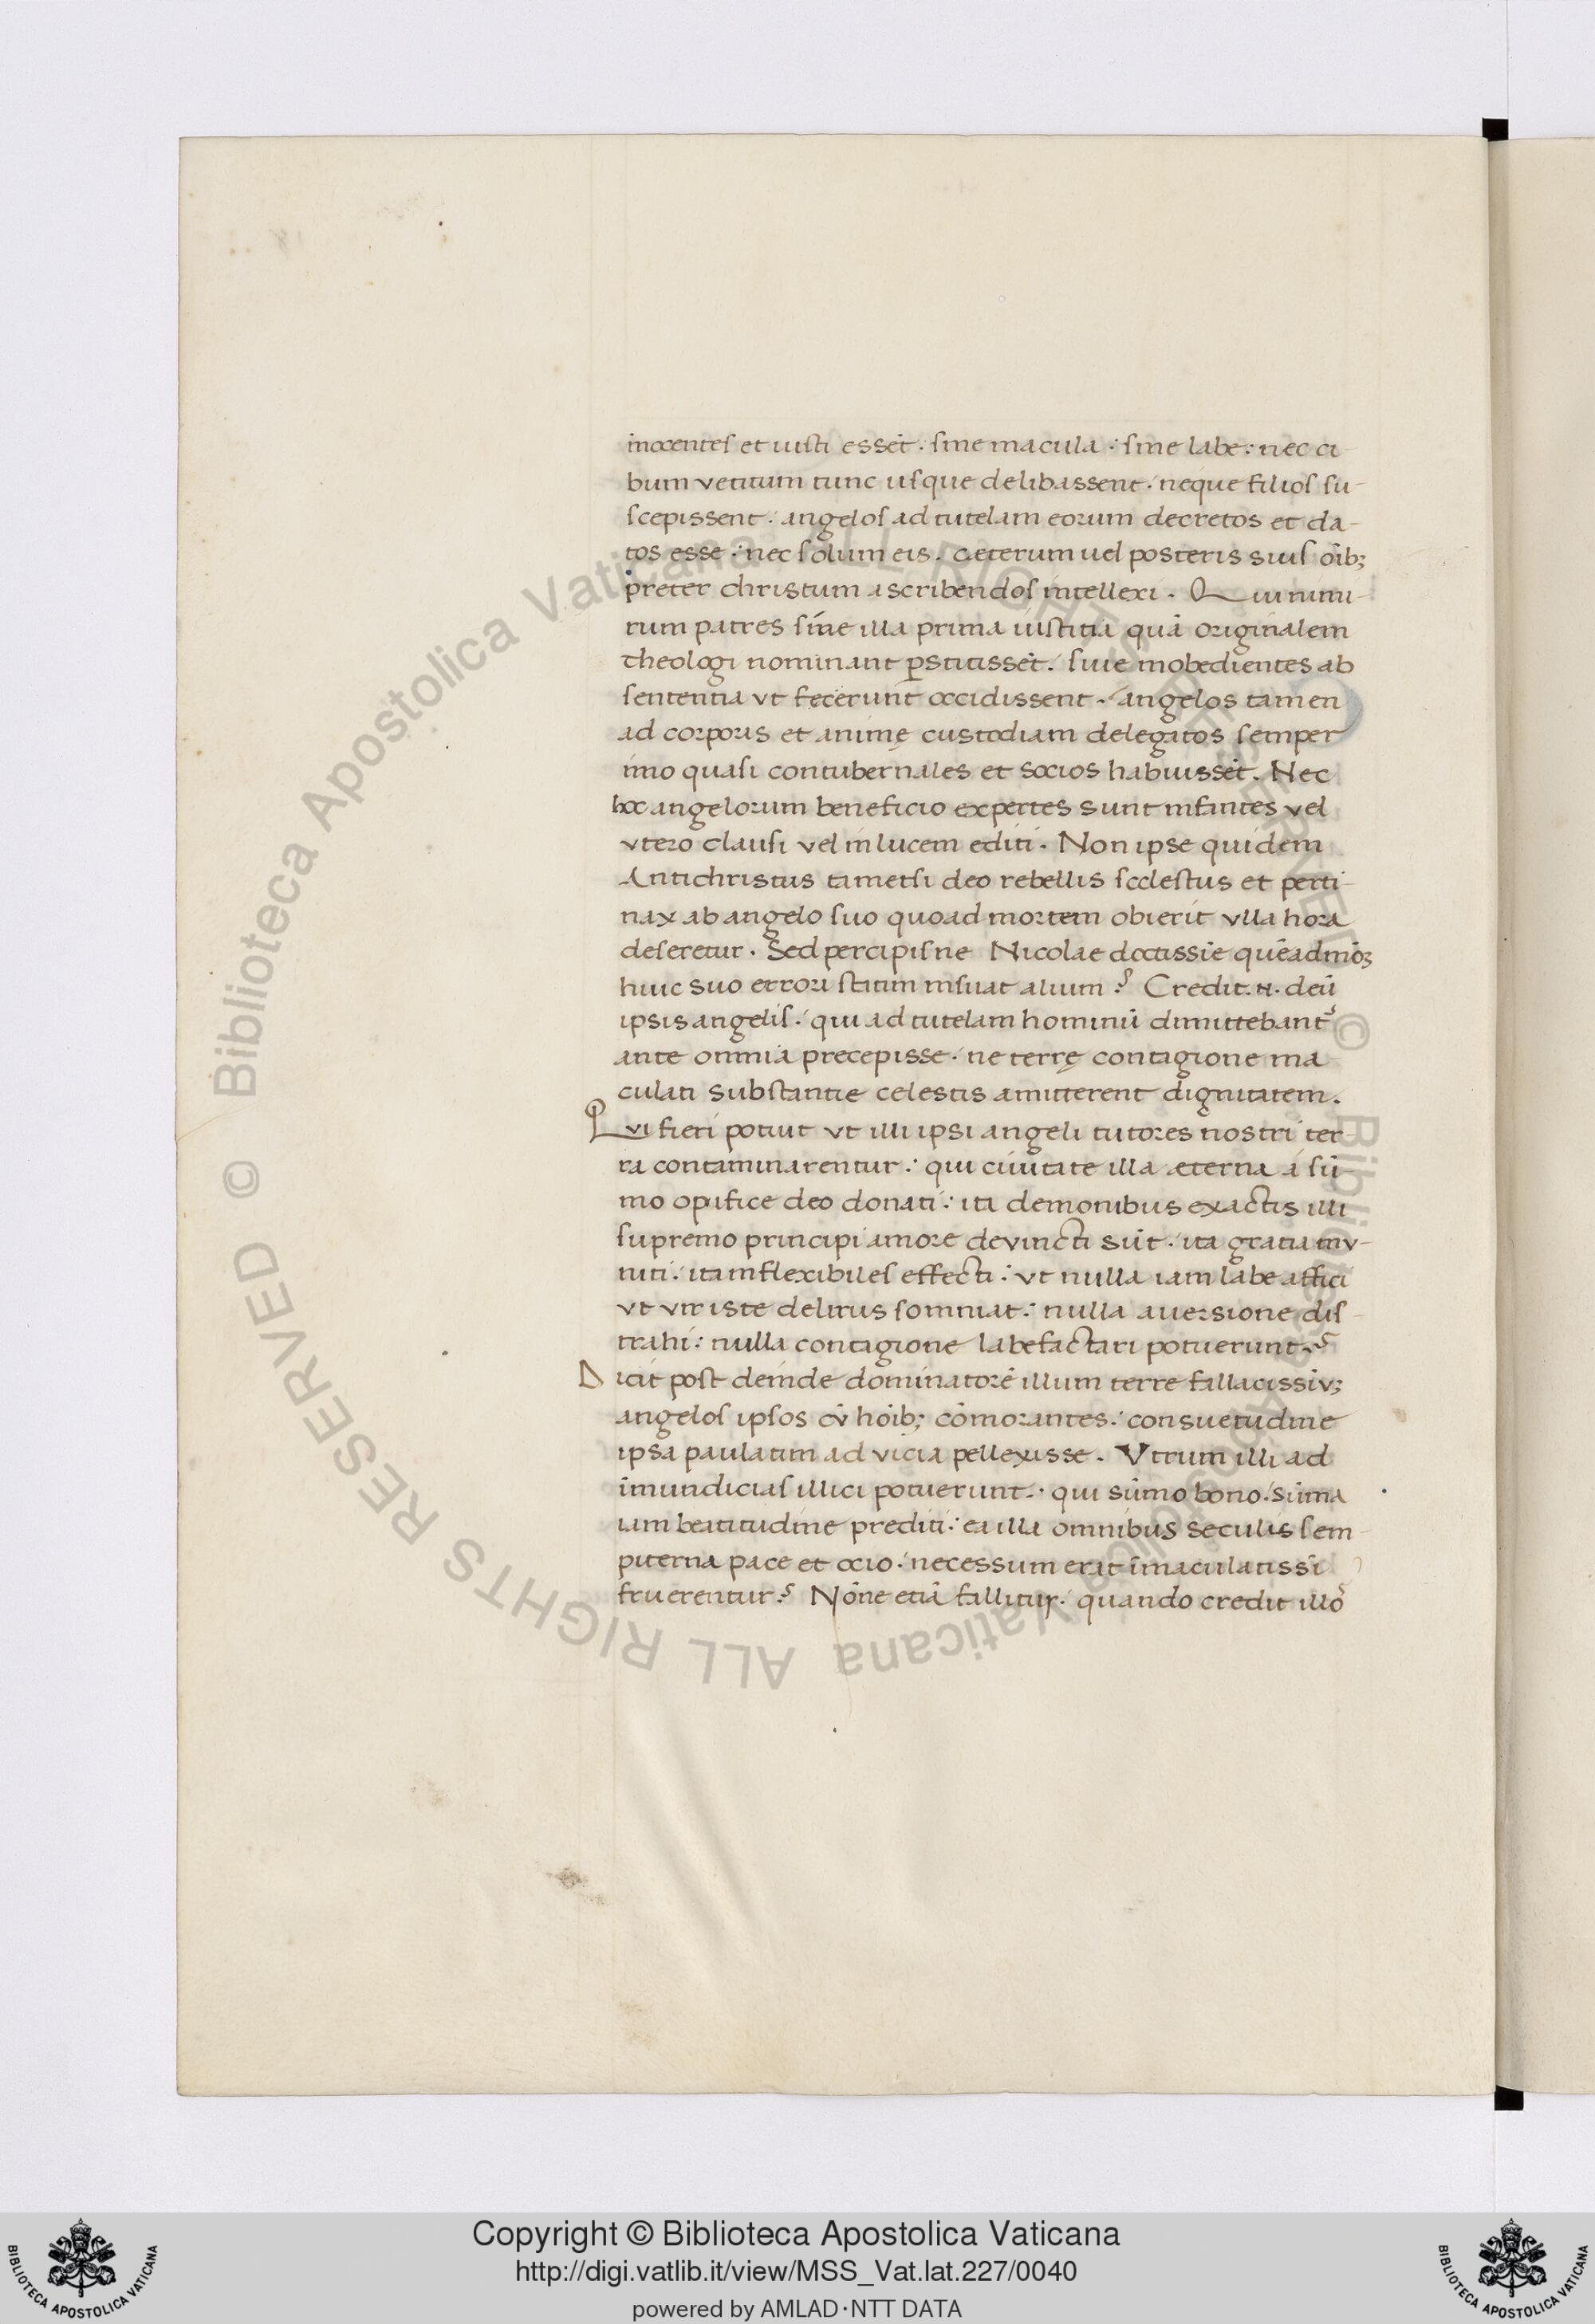 inocentes et iusti essēt · sine macula : sine labe : nec ci-
bum vetitum tunc usque delibassent · neque filios su-
scepissent · angelos ad tutelam eorum decretos et da-
tos esse · nec solum eis . ceterum uel posteris suis oīb;
preter christum ascribendos intellexi . Qui nimi-
rum patres sine illa prima iustitia quā originalem
theologi nominant ꝑstitissēt . siue inobedientes ab
sententia vt fecerunt occidissent . angelos tamen
ad corporis et animę custodiam delegatos semper
imo quasi contubernales et socios habuissēt . Nec
hoc angelorum beneficio expertes sunt infantes vel
vtero clausi vel in lucem editi . Non ipse quidem
Antichristus tametsi deo rebellis scelestus et perti-
nax ab angelo suo quoad mortem obierit vlla hora
deseretur . Sed percipisne Nicolae doctissīe quēadmōꝫ
huic suo errori statim insuat alium ? Credit .n. deū
ipsis angelis . qui ad tutelam hominū dimittebant᷑
ante omnia precepisse . ne terrę contagione ma
culati substantie celestis amitterent dignitatem .
Qvi fieri potuit vt illi ipsi angeli tutores nostri ter
ra contaminarentur : qui ciuitate illa æterna a sū
mo opifice deo donati : ita demonibus exactis illi
supremo principi amore devincti sūt . ita gratia mv-
niti . ita inflexibiles effecti : vt nulla iam labe affici
vt vir iste delirus somniat : nulla auersione dis-
trahi : nulla contagione labefactari potuerunt ?
Dicit post deinde dominatorē illum terre fallacissīvꝫ
angelos ipsos cv̄ hōib; cōmorantes . consuetudine
ipsa paulatim ad vicia pellexisse . Vtrum illi ad
īmundicias illici potuerunt . qui sūmo bono . sūma
iam beatitudine prediti : ea illa omnibus seculis sem-
piterna pace et ocio . necessum erat īmaculatissī
fruerentur ? Nōne etiā fallitur . quando credit illo᷑
Copyright © Biblioteca Apostolica Vaticana
http://digi.vatlib.it/view/MSS_Vat.lat.227/0040
powered by AMLAD·NTT DATA
© Biblioteca Apostolica Vaticana ALL RIGHTS RESERVED
© Biblioteca Apostolica Vaticana ALL RIGHTS RESERVED
BIBLIOTECA APOSTOLICA VATICANA
BIBLIOTECA APOSTOLICA VATICANA